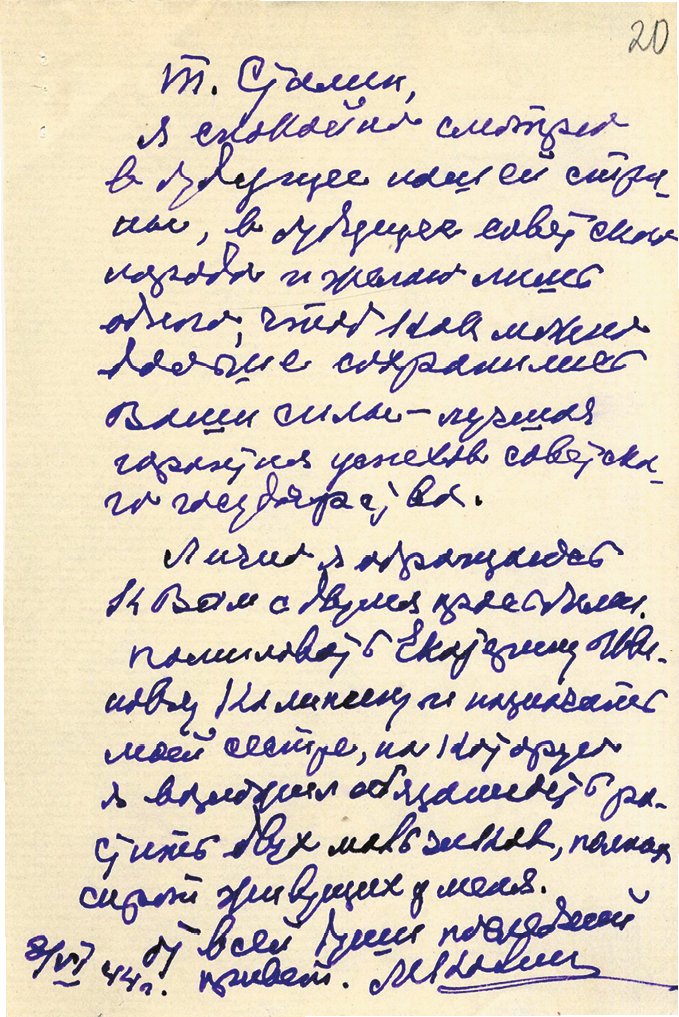 20
т. Сталин,
я спокойно смотрю
в будущее нашей стра-
ны, в будущее советского
народа и желаю лишь
одного, чтоб как можно
больше сохранились
Ваши силы – лучшая
гарантия успехов советско-
го государства.
Лично я обращаюсь
к Вам с двумя просьбами.
помиловать Екатерину Ива-
новну Калинину и назначить
моей сестре, на которую
я возложил обязанность ра-
стить двух мальчиков, полных
сирот живущих у меня.
От всей души последний
8/VI 44 г. привет. М. Калинин